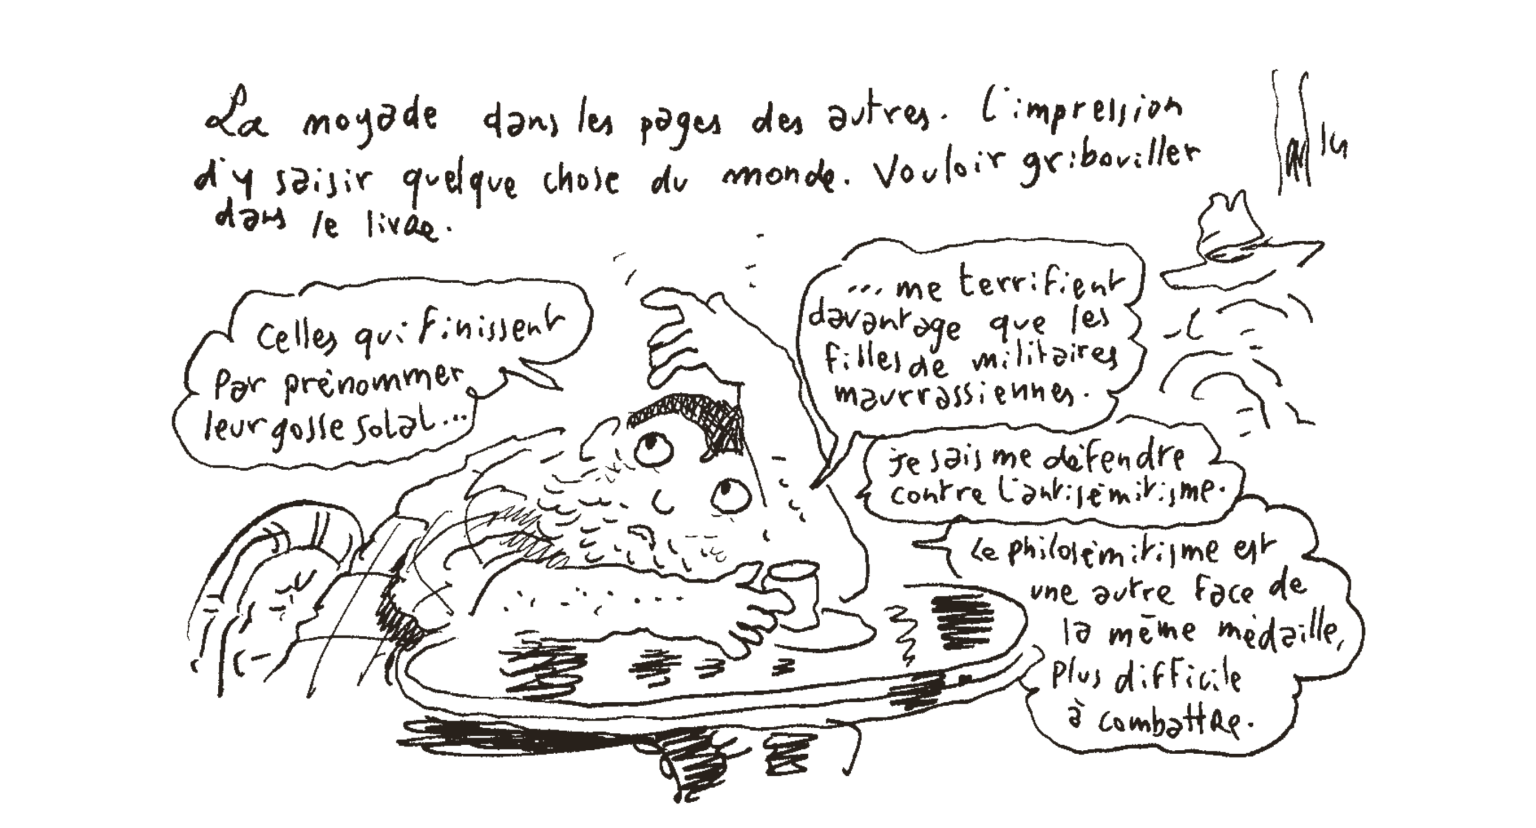 La noyade dans les pages des autres. L'impression
d'y saisir quelque chose du monde. Vouloir gribouiller
dans le livre.
Celles qui finissent
par prénommer
leur gosse Solal...
... me terrifient
davantage que les
filles de militaires
maurrassiennes.
Je sais me défendre
contre l'antisémitisme.
Le philosémitisme est
une autre face de
la même médaille,
plus difficile
à combattre.